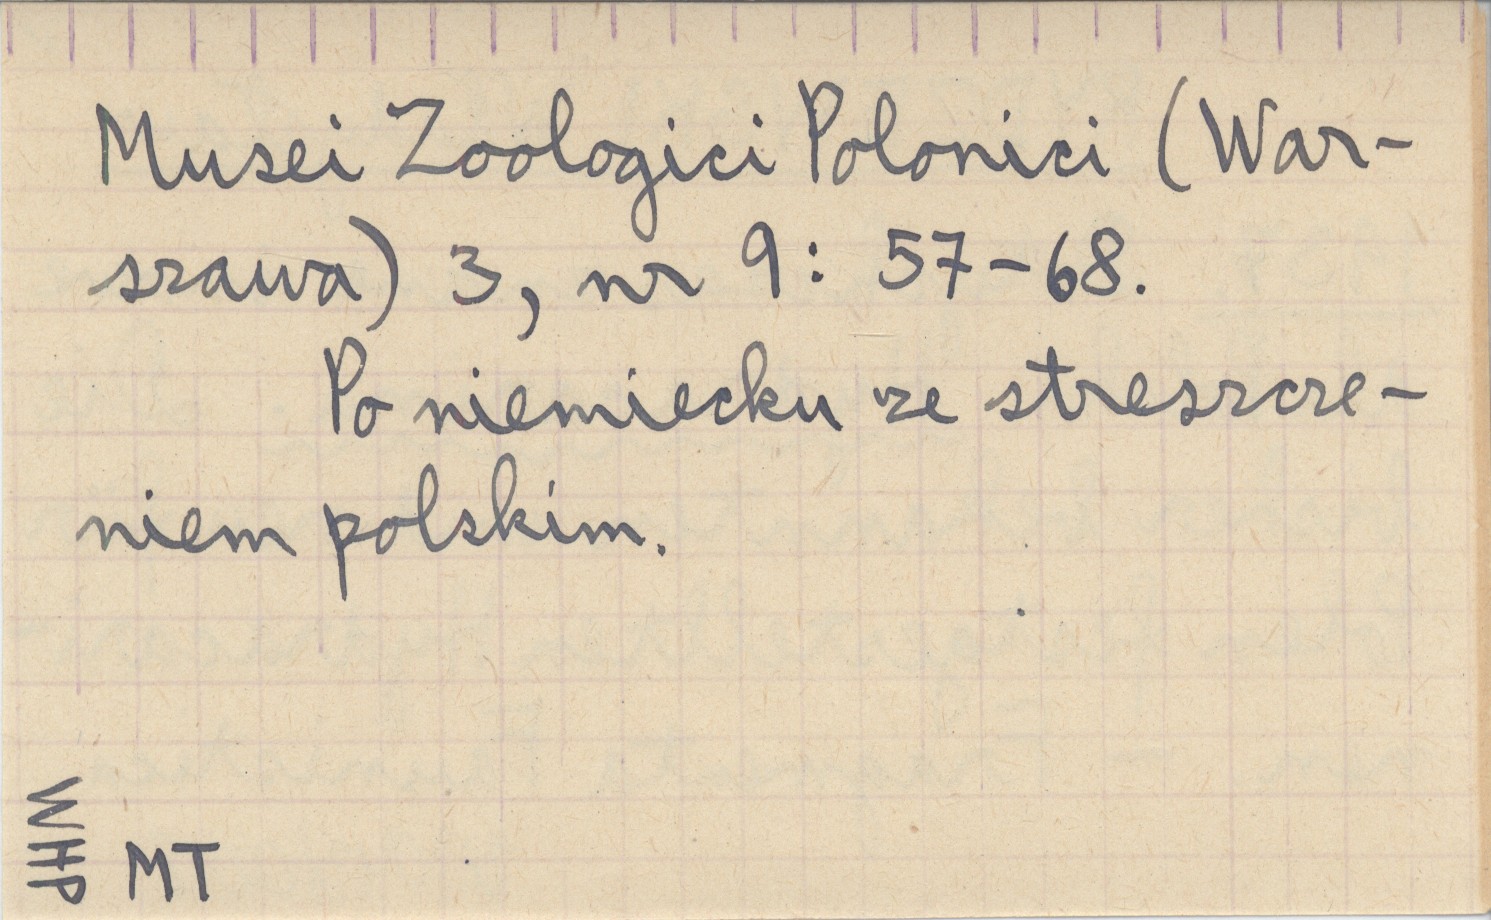 Musei Zoologici Polonici (War-
szawa) 3, nr 9: 57-68.
Po niemiecku ze streszcze-
niem polskim.
WHP
MT